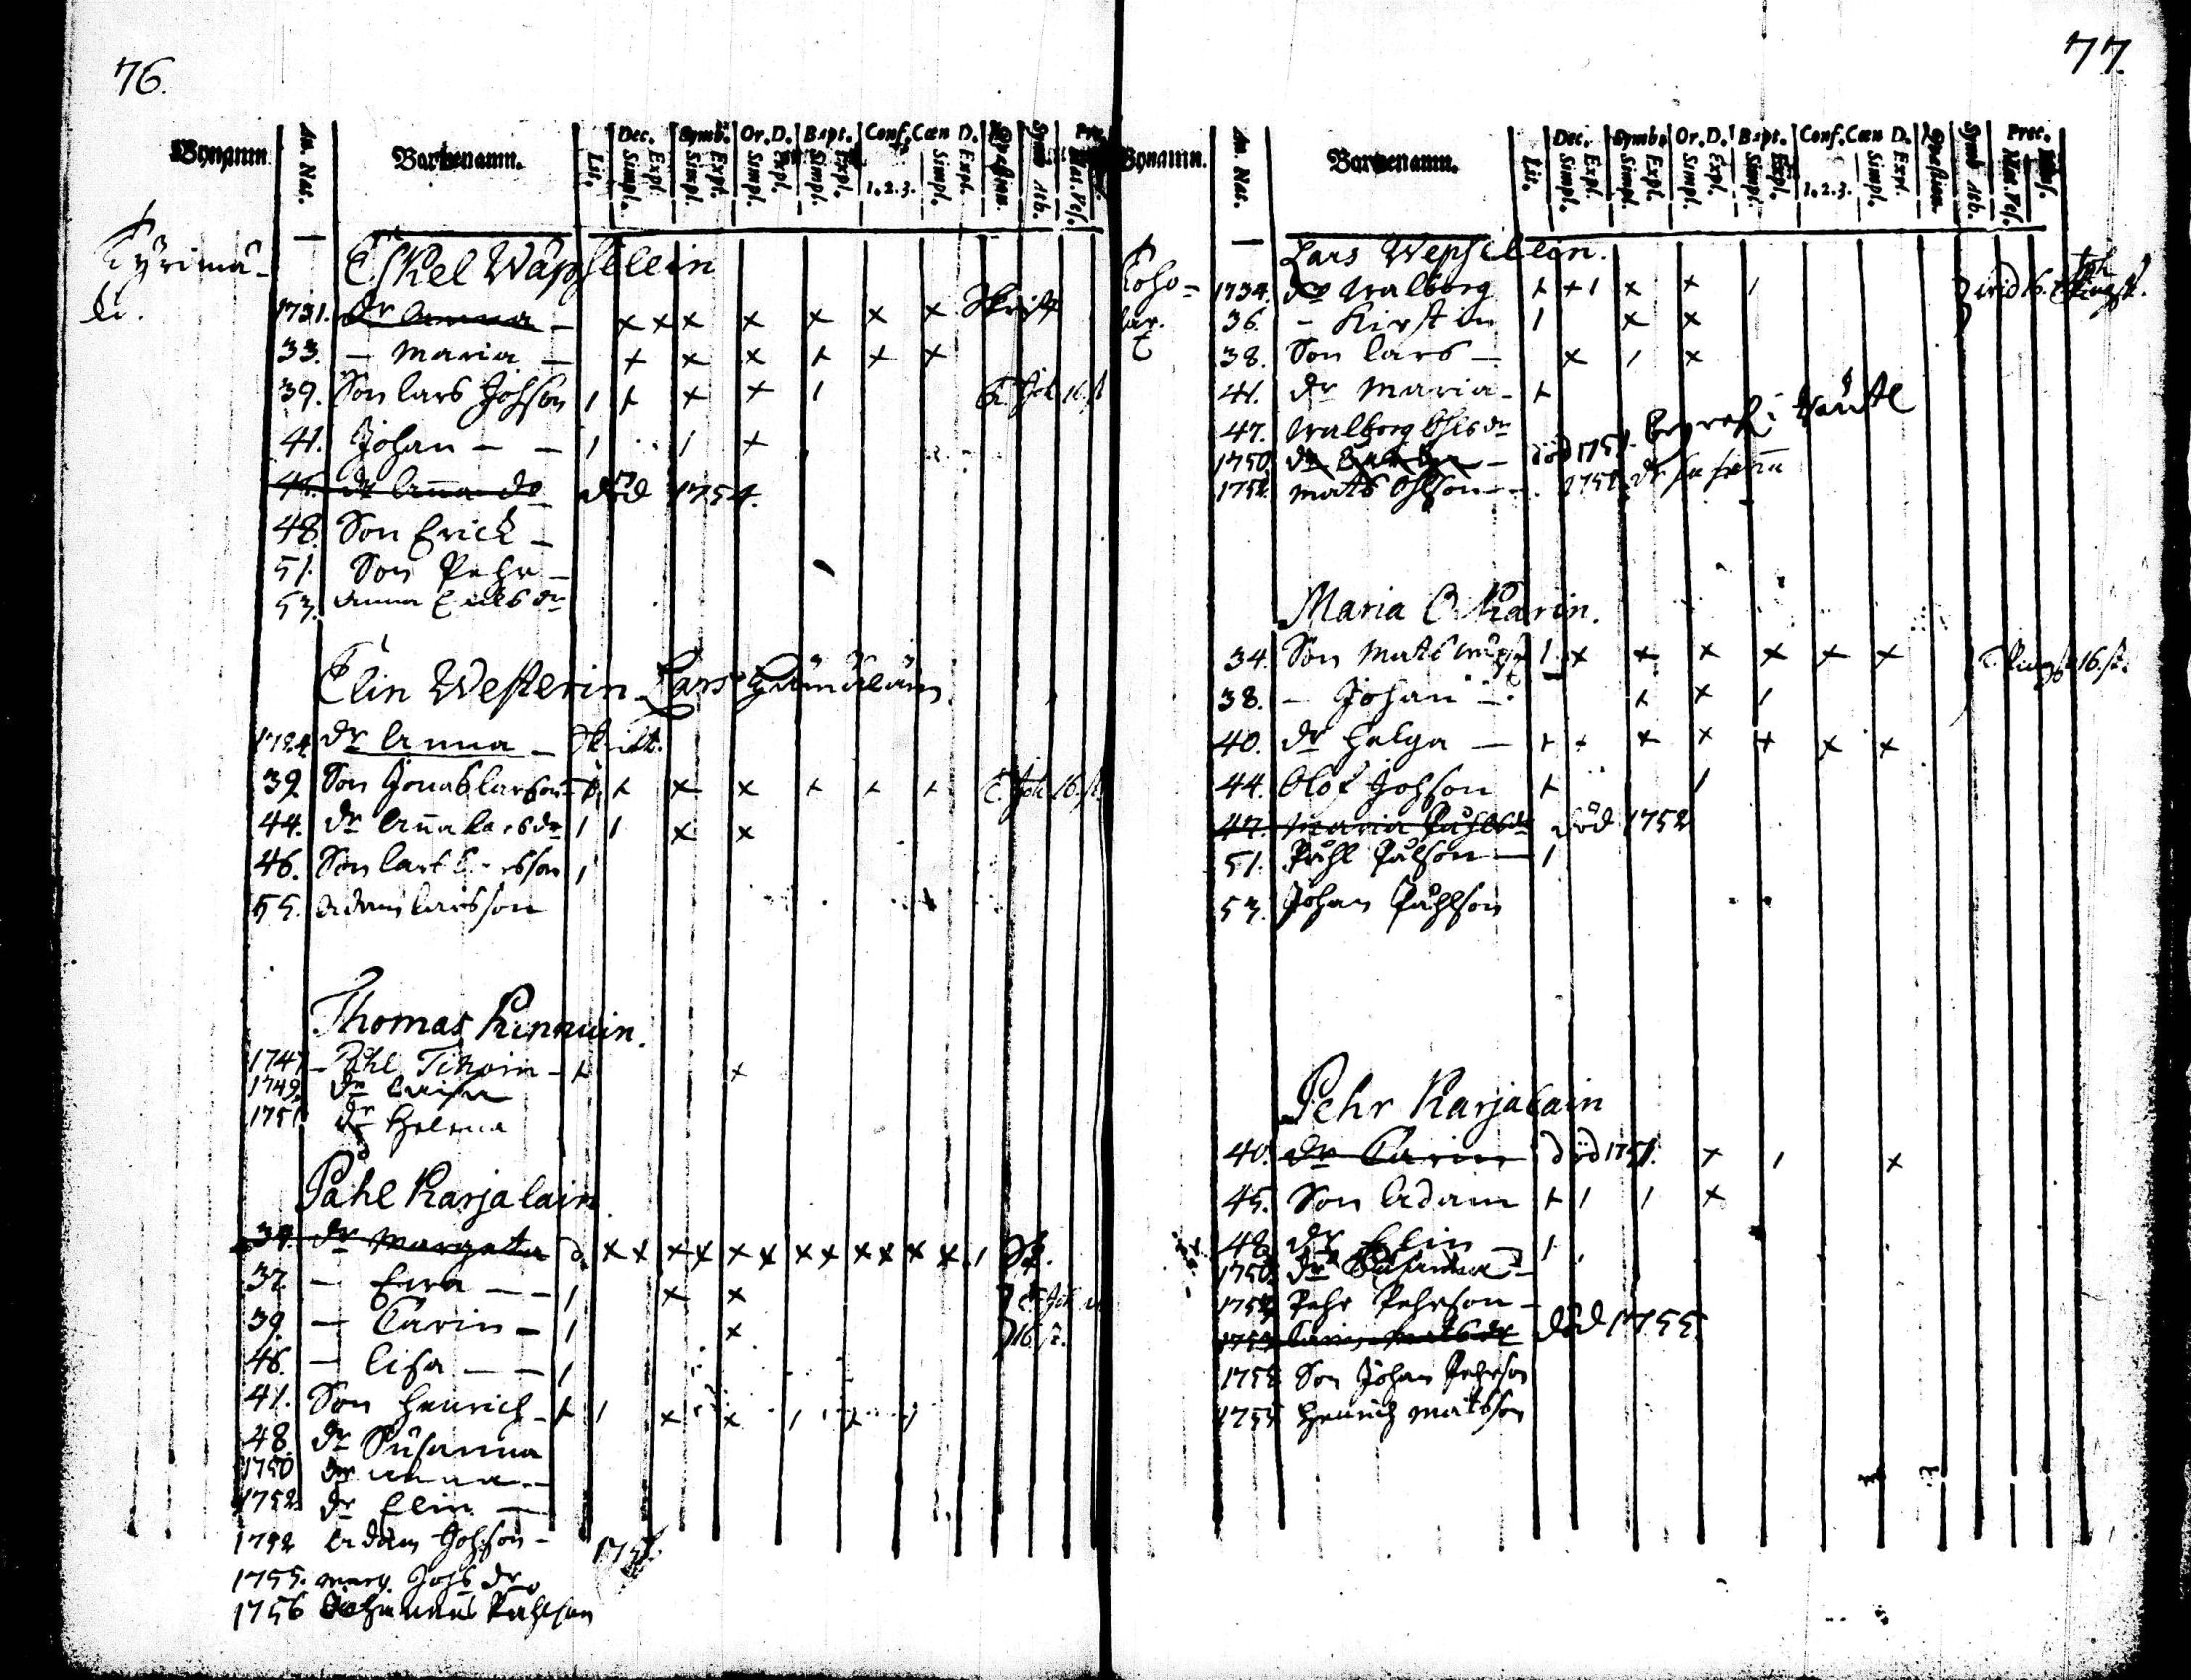 76.
Bynamn. An. Nat. Barnenamn. Lit. Dec. Simpl. Expl. Symb. Simpl. Expl. Or. D. Simpl. Expl. Bapt. Simpl. Expl. Conf. 1. 2. 3. Cœn D. Simpl. Expl. Quæstion. Symb. Ath. Prec. Mat. Ves.
Kÿrimä-
Eskel Wäpsäläin
1731. dr Anna — x x x x x x x Skrift
33. — Maria — x x x x x x
39. Son Lars Johson 1 x x x 1
41. Johan — — 1 1 x
46. dr Anna do död 1754.
48. Son Erick —
51. Son Pehr —
53. Anna dr
Elin Westerin Lars
1724 dr Anna — Skrift.
39 Son Jonas Larson x x x x x x
44. dr Anna Larsdr 1 1 x x
46. Son Lars 1
55. Adam Larsson
Thomas Kinnuin.
1747 — Påhl Tikain — x x
1749. dr Caisa
1751 dr Helena
Påhl Karjalain.
34. dr Margeta x x x x x x x x x x x x 1
37 — Ewa — — 1 x x
39. — Carin — 1 x
16 st.
46. — Lisa — — 1
41. Son Henrich — x 1 x x 1 x 1
48. dr Susanna
1750 dr Anna —
1752. dr Elin —
1752 Adam Johson —
1755. Marg. Johs dr
1756 Johannes Påhlson
77.
Bynamn. An. Nat. Barnenamn. Lit. Dec. Simpl. Expl. Symb. Simpl. Expl. Or. D. Simpl. Expl. Bapt. Simpl. Expl. Conf. 1. 2. 3. Cœn D. Simpl. Expl. Quæstion. Symb. Ath. Prec. Mat. Ves.
Lars Wepsäläin.
1734. dr Walborg x x 1 x x 1
36. — Kirstin 1 x x
38. Son Lars — x 1 x
41. dr Maria — x
47. Walborg Ohlsdr
1750 dr — död 1751.
1752 Mats Ohlson —
Maria O. Karin.
34. Son Mats 1. x x x x x x 16 st.
38. — Johan — x x 1
40. dr Helga — x x x x x x x
44. Olof Johson x 1
47. Maria Påhlsdr död 1752
51. Påhl Påhlson — 1
53. Johan Påhlson
Pehr Karjalain
40. dr Carin död 1751. x 1 x
45. Son Adam x 1 1 x
48 dr Elin — 1
1750 dr Johanna —
1752 Pehr Pehrson —
Carin Matsdr död 1755.
Son Johan Pehrson
1755 Henrich Matsson